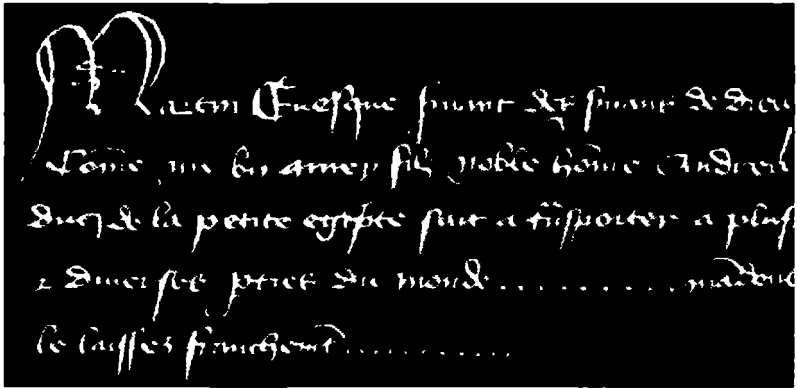 Martin Evesque s'vant des s'vans de dieu
Come nre bn amey filz noble home Andreu
duc de la petite egipte soit a trasporter a plus
& diverses pties du monde .......... mandons
le laisses franchemt ..........